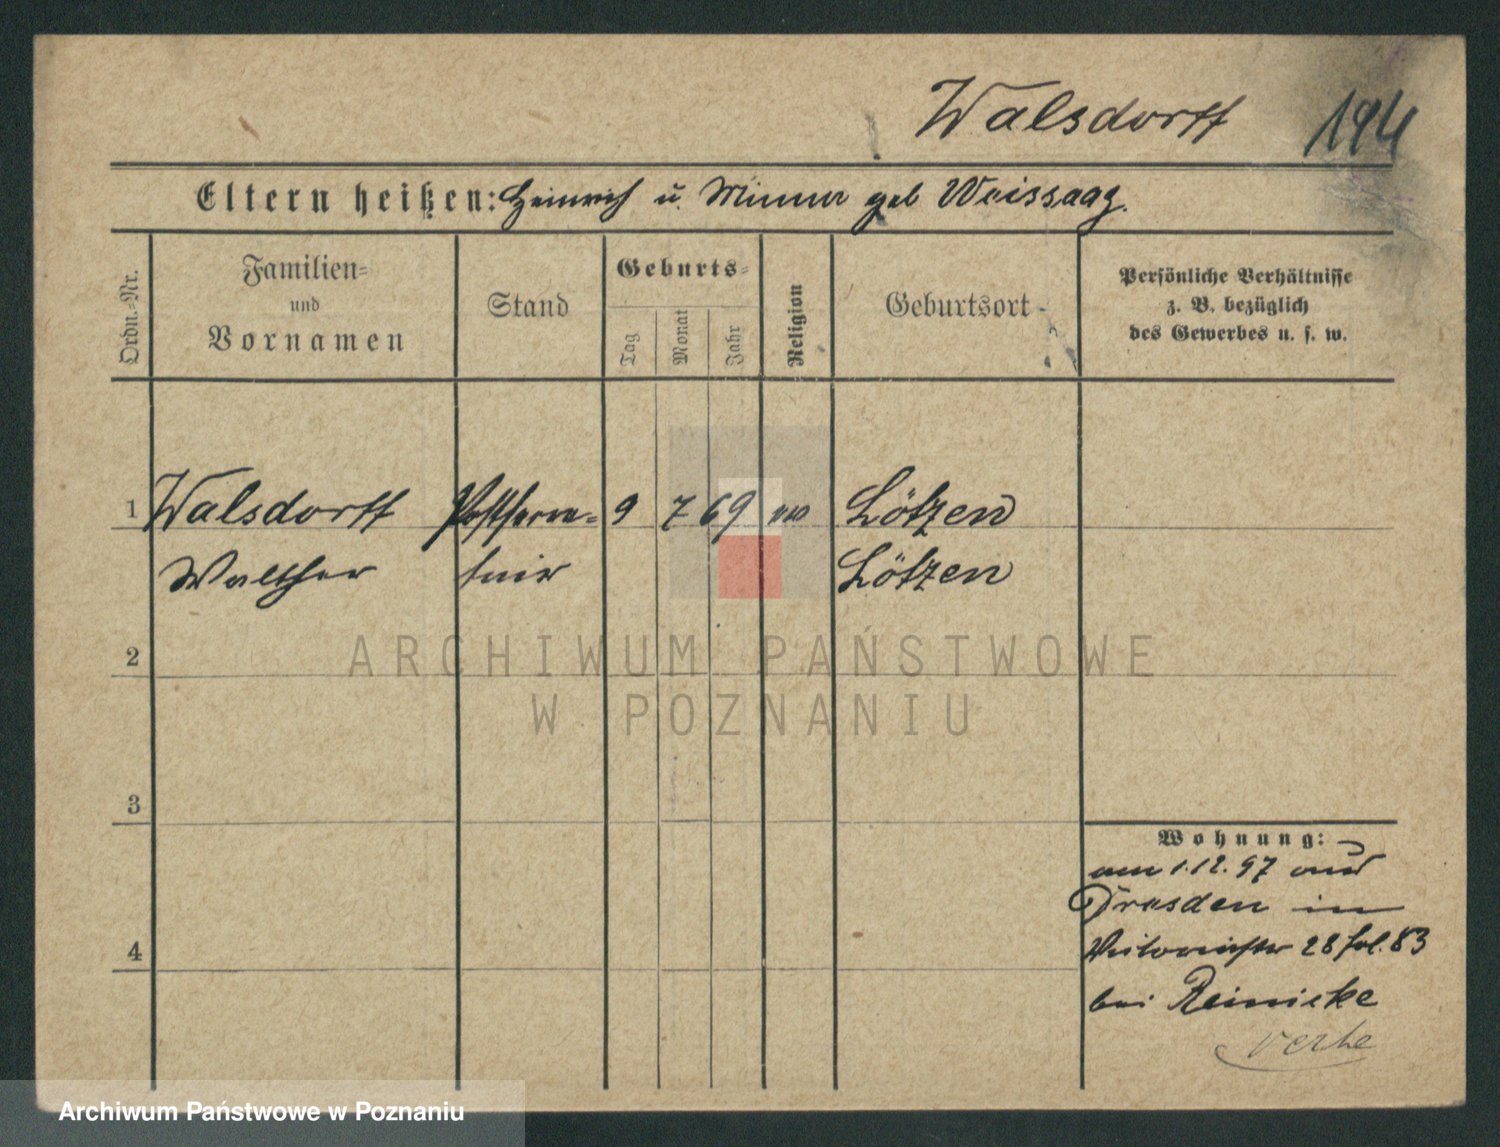 Walsdorff 194
Eltern heißen: Heinrich u. Minna geb Weissagg.
Ordn.-Nr.
Familien-
und
Vornamen
Stand
Geburts-
Tag
Monat
Jahr
Religion
Geburtsort
Persönliche Verhältnisse
z. B. bezüglich
des Gewerbes u. s. w.
1 Walsdorff Postsecre- 9 7 69 Lötzen
Walther tair Lötzen
ARCHIWUM PAŃSTWOWE
W POZNANIU
2
3
4
Wohnung:
am 1.12.97 aus
Dresden in
28 fol. 83
bei Reinicke
Archiwum Państwowe w Poznaniu